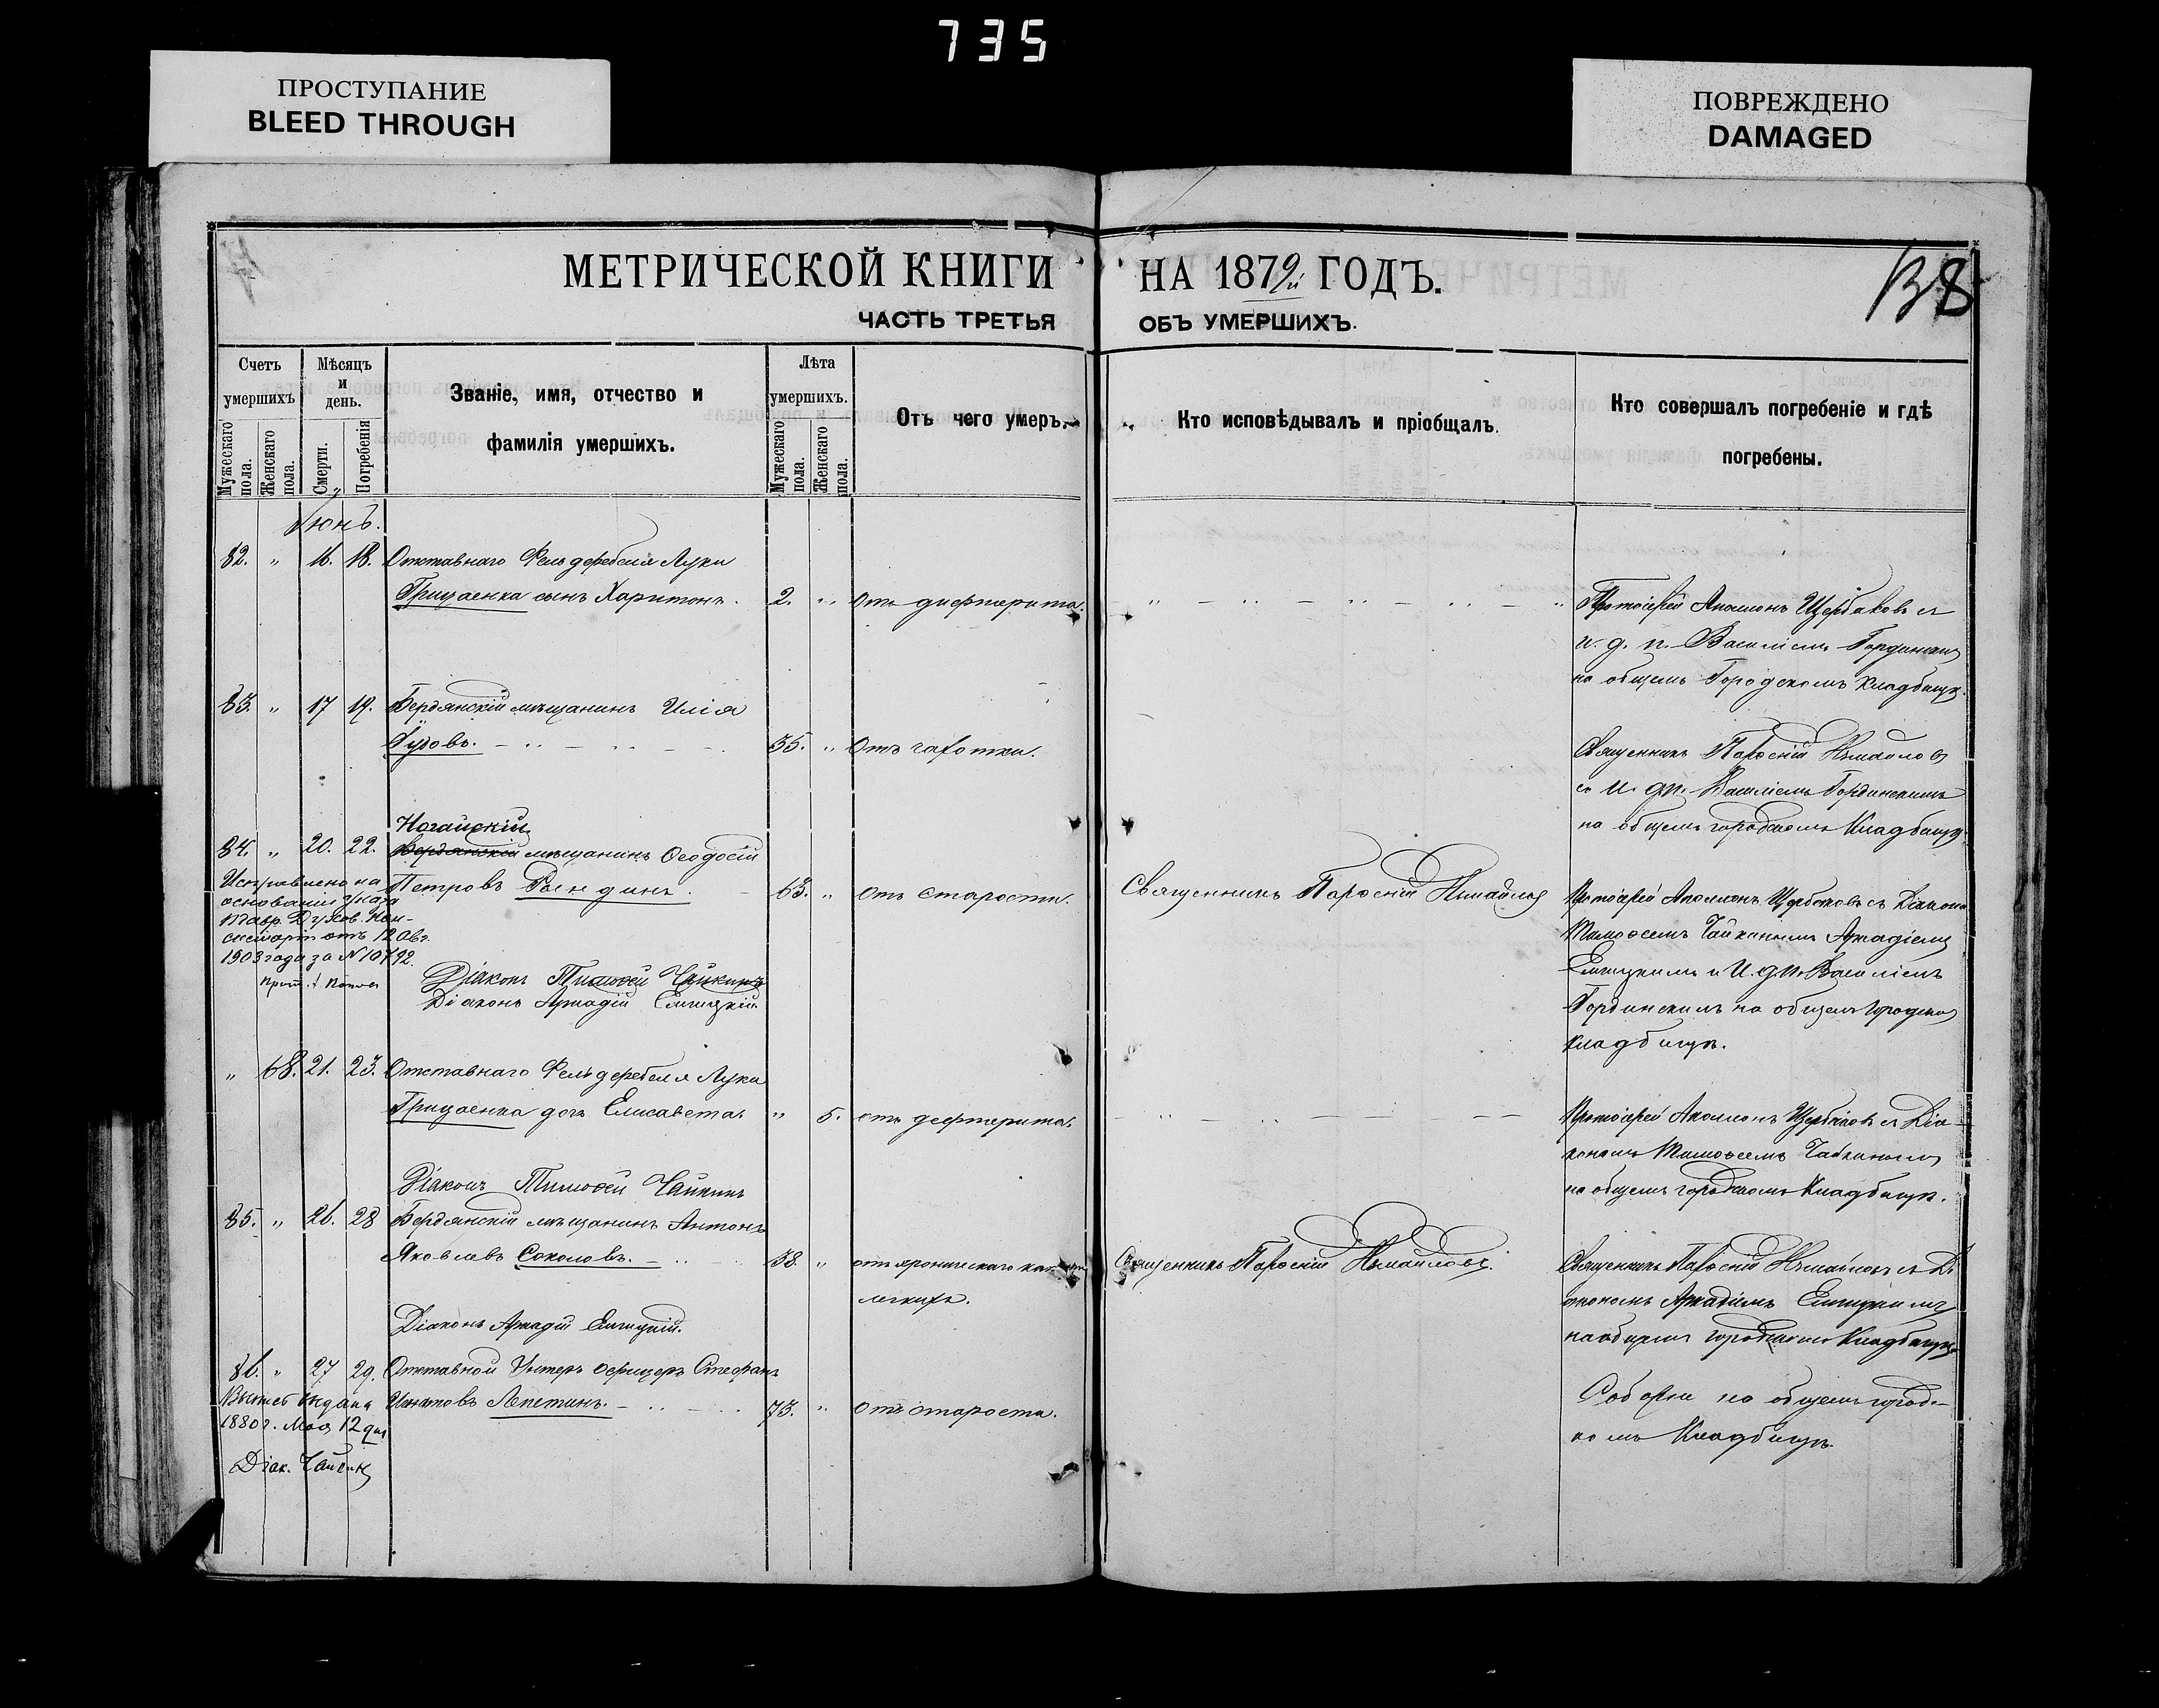 735
ПРОСТУПАНИЕ
BLEED THROUGH
ПОВРЕЖДЕНО
DAMAGED
МЕТРИЧЕСКОЙ КНИГИ НА 1879й ГОДЪ.
138
ЧАСТЬ ТРЕТЬЯ ОБЪ УМЕРШИХЪ.
Счетъ умершихъ
Мужескаго пола.
Женскаго пола.
Мѣсяцъ и день.
Смерти.
Погребенія
Званіе, имя, отчество и фамилія умершихъ.
Лѣта умершихъ.
Мужескаго пола.
Женскаго пола.
Отъ чего умеръ.
Кто исповѣдывалъ и пріобщалъ.
Кто совершалъ погребеніе и гдѣ погребены.
Іюнь.
82. " 16. 18. Отставнаго Фельдфебеля Луки
Грицаенка сынъ Харитонъ. 2. " Отъ дифтерита.
Протоіерей Аполлонъ Щербаковъ съ
и. д. п. Василіемъ
на общемъ Городскомъ кладбищѣ.
83. " 17 19. Бердянскій мѣщанинъ Илія
Гузовъ. 35. " Отъ чахотки.
Священникъ Парѳеній Измайловъ
съ и. д. п. Василіемъ Гординскимъ
на общемъ городскомъ Кладбищѣ.
Ногайскій
84. " 20. 22. Бердянскій мѣщанинъ Ѳеодосій
Петровъ Рындинъ. 63. " Отъ старости.
Священникъ Парѳеній Измайловъ
Протоіерей Аполлонъ Щербаковъ съ Діакона
Тимоѳеемъ Чайкинымъ Аркадіемъ
и И. д. п. Василіемъ
Гординскимъ на общемъ городском
кладбищѣ.
Исправлено на
основаніи указа
Тавр. Духов. Кон-
систоріи отъ 12 Авг.
1903 года за № 10792.
Діаконъ Тимоѳей Чайкинъ
Діаконъ Аркадій
" 68. 21. 23. Отставнаго Фельдфебеля Луки
Грицаенка дочь Елисавета. " 5. отъ дифтерита.
Протоіерей Аполлонъ Щербаковъ съ Діа-
кономъ Тимоѳеемъ Чайкинымъ
на общемъ городскомъ Кладбищѣ.
Діаконъ Тимоѳей Чайкинъ
85. " 26. 28 Бердянскій мѣщанинъ Антонъ
Яковлевъ Соколовъ. 38. " отъ хроническаго
легкихъ.
Священникъ Парѳеній Измайловъ.
Священникъ Парѳеній Измайловъ съ Ді
акономъ Аркадіемъ
на общемъ городскомъ Кладбищѣ
Діаконъ Аркадій
86. " 27 29. Отставной Унтеръ Офицеръ Стефанъ
Лепетинъ. 73. " Отъ старости.
Соборне на общемъ город-
комъ Кладбищѣ.
1880 г. Мая 12 дня
Діак. Чайкинъ